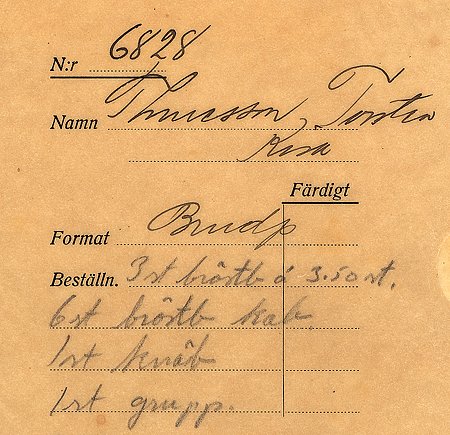 N:r 6828
Namn Thuresson, Torsten
Rosa
Färdigt
Format Brudp
Beställn. 3 st bröstb á 3.50 st.
6 st bröstb kab.
1 st knäb
1 st grupp.